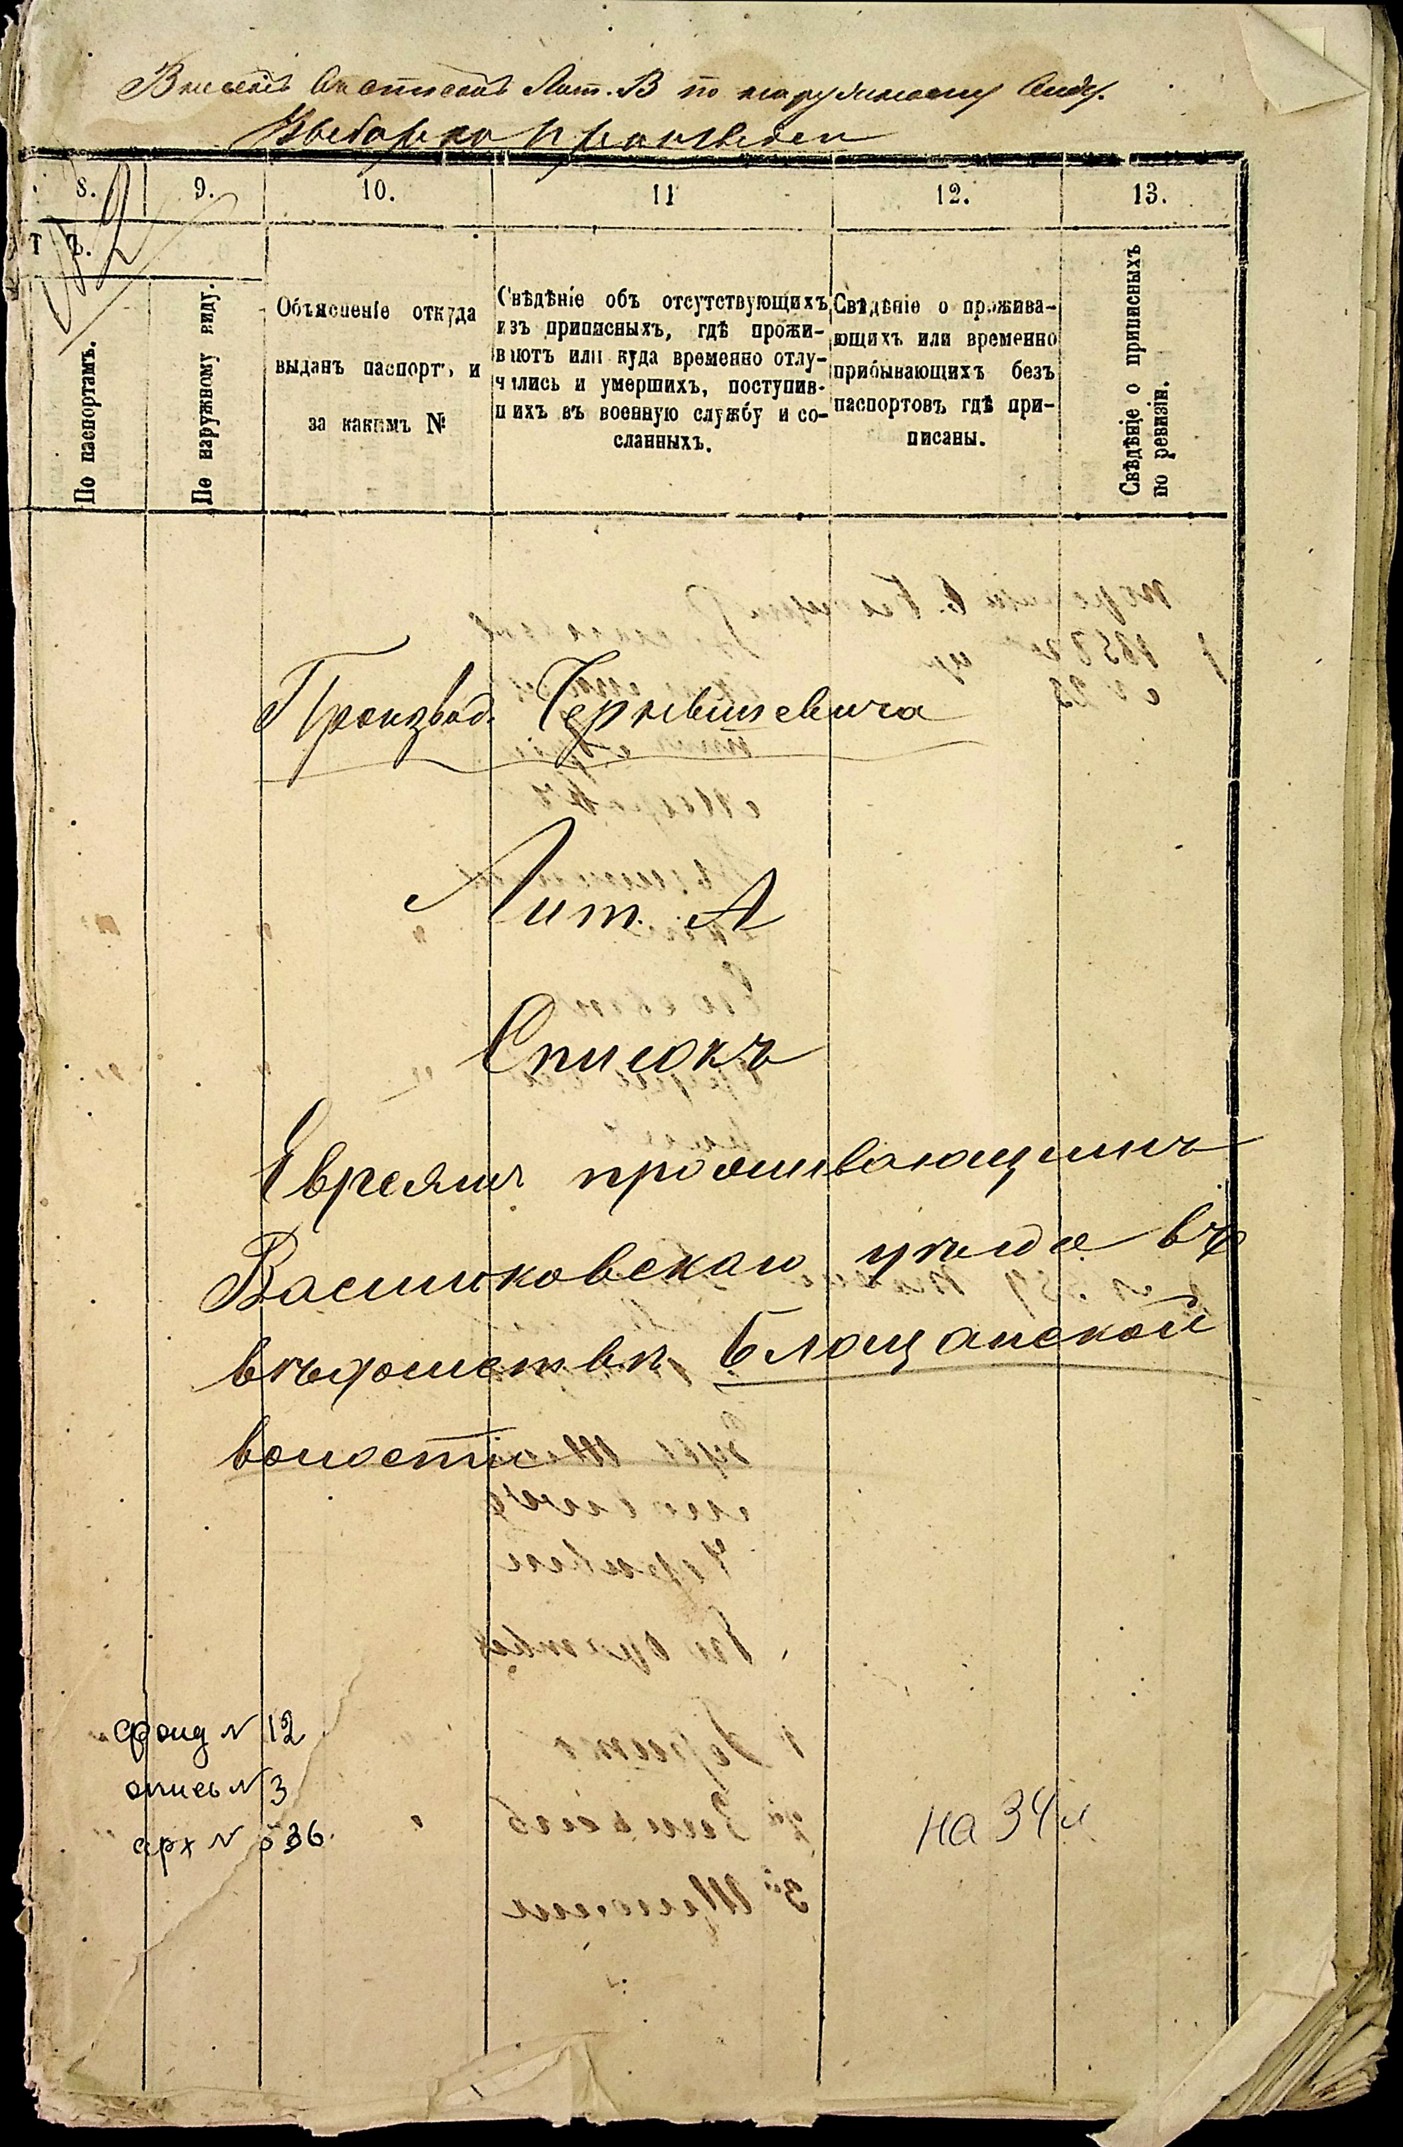 Лит. В по наружному виду.
Выборка произведен
8. 9. 10. 11 12. 13.
Т Ъ.
№ 2
По паспортамъ.
По наружному виду.
Объясненіе откуда
выданъ паспортъ и
за какимъ №
Свѣдѣніе объ отсутствующихъ
изъ приписныхъ, гдѣ прожи-
ваютъ или куда временно отлу-
чились и умершихъ, поступив-
шихъ въ военную службу и со-
сланныхъ.
Свѣдѣніе о прожива-
ющихъ или временно
прибывающихъ безъ
паспортовъ гдѣ при-
писаны.
Свѣдѣніе о приписныхъ
по ревизіи.
Произвед. Чернышевича
Лит. А
Списокъ
Евреямъ проживающимъ
Васильковскаго уѣзда въ
вѣдомствѣ Блощанской
волости
фонд № 12
опись № 3
арх № 536.
на 34 л